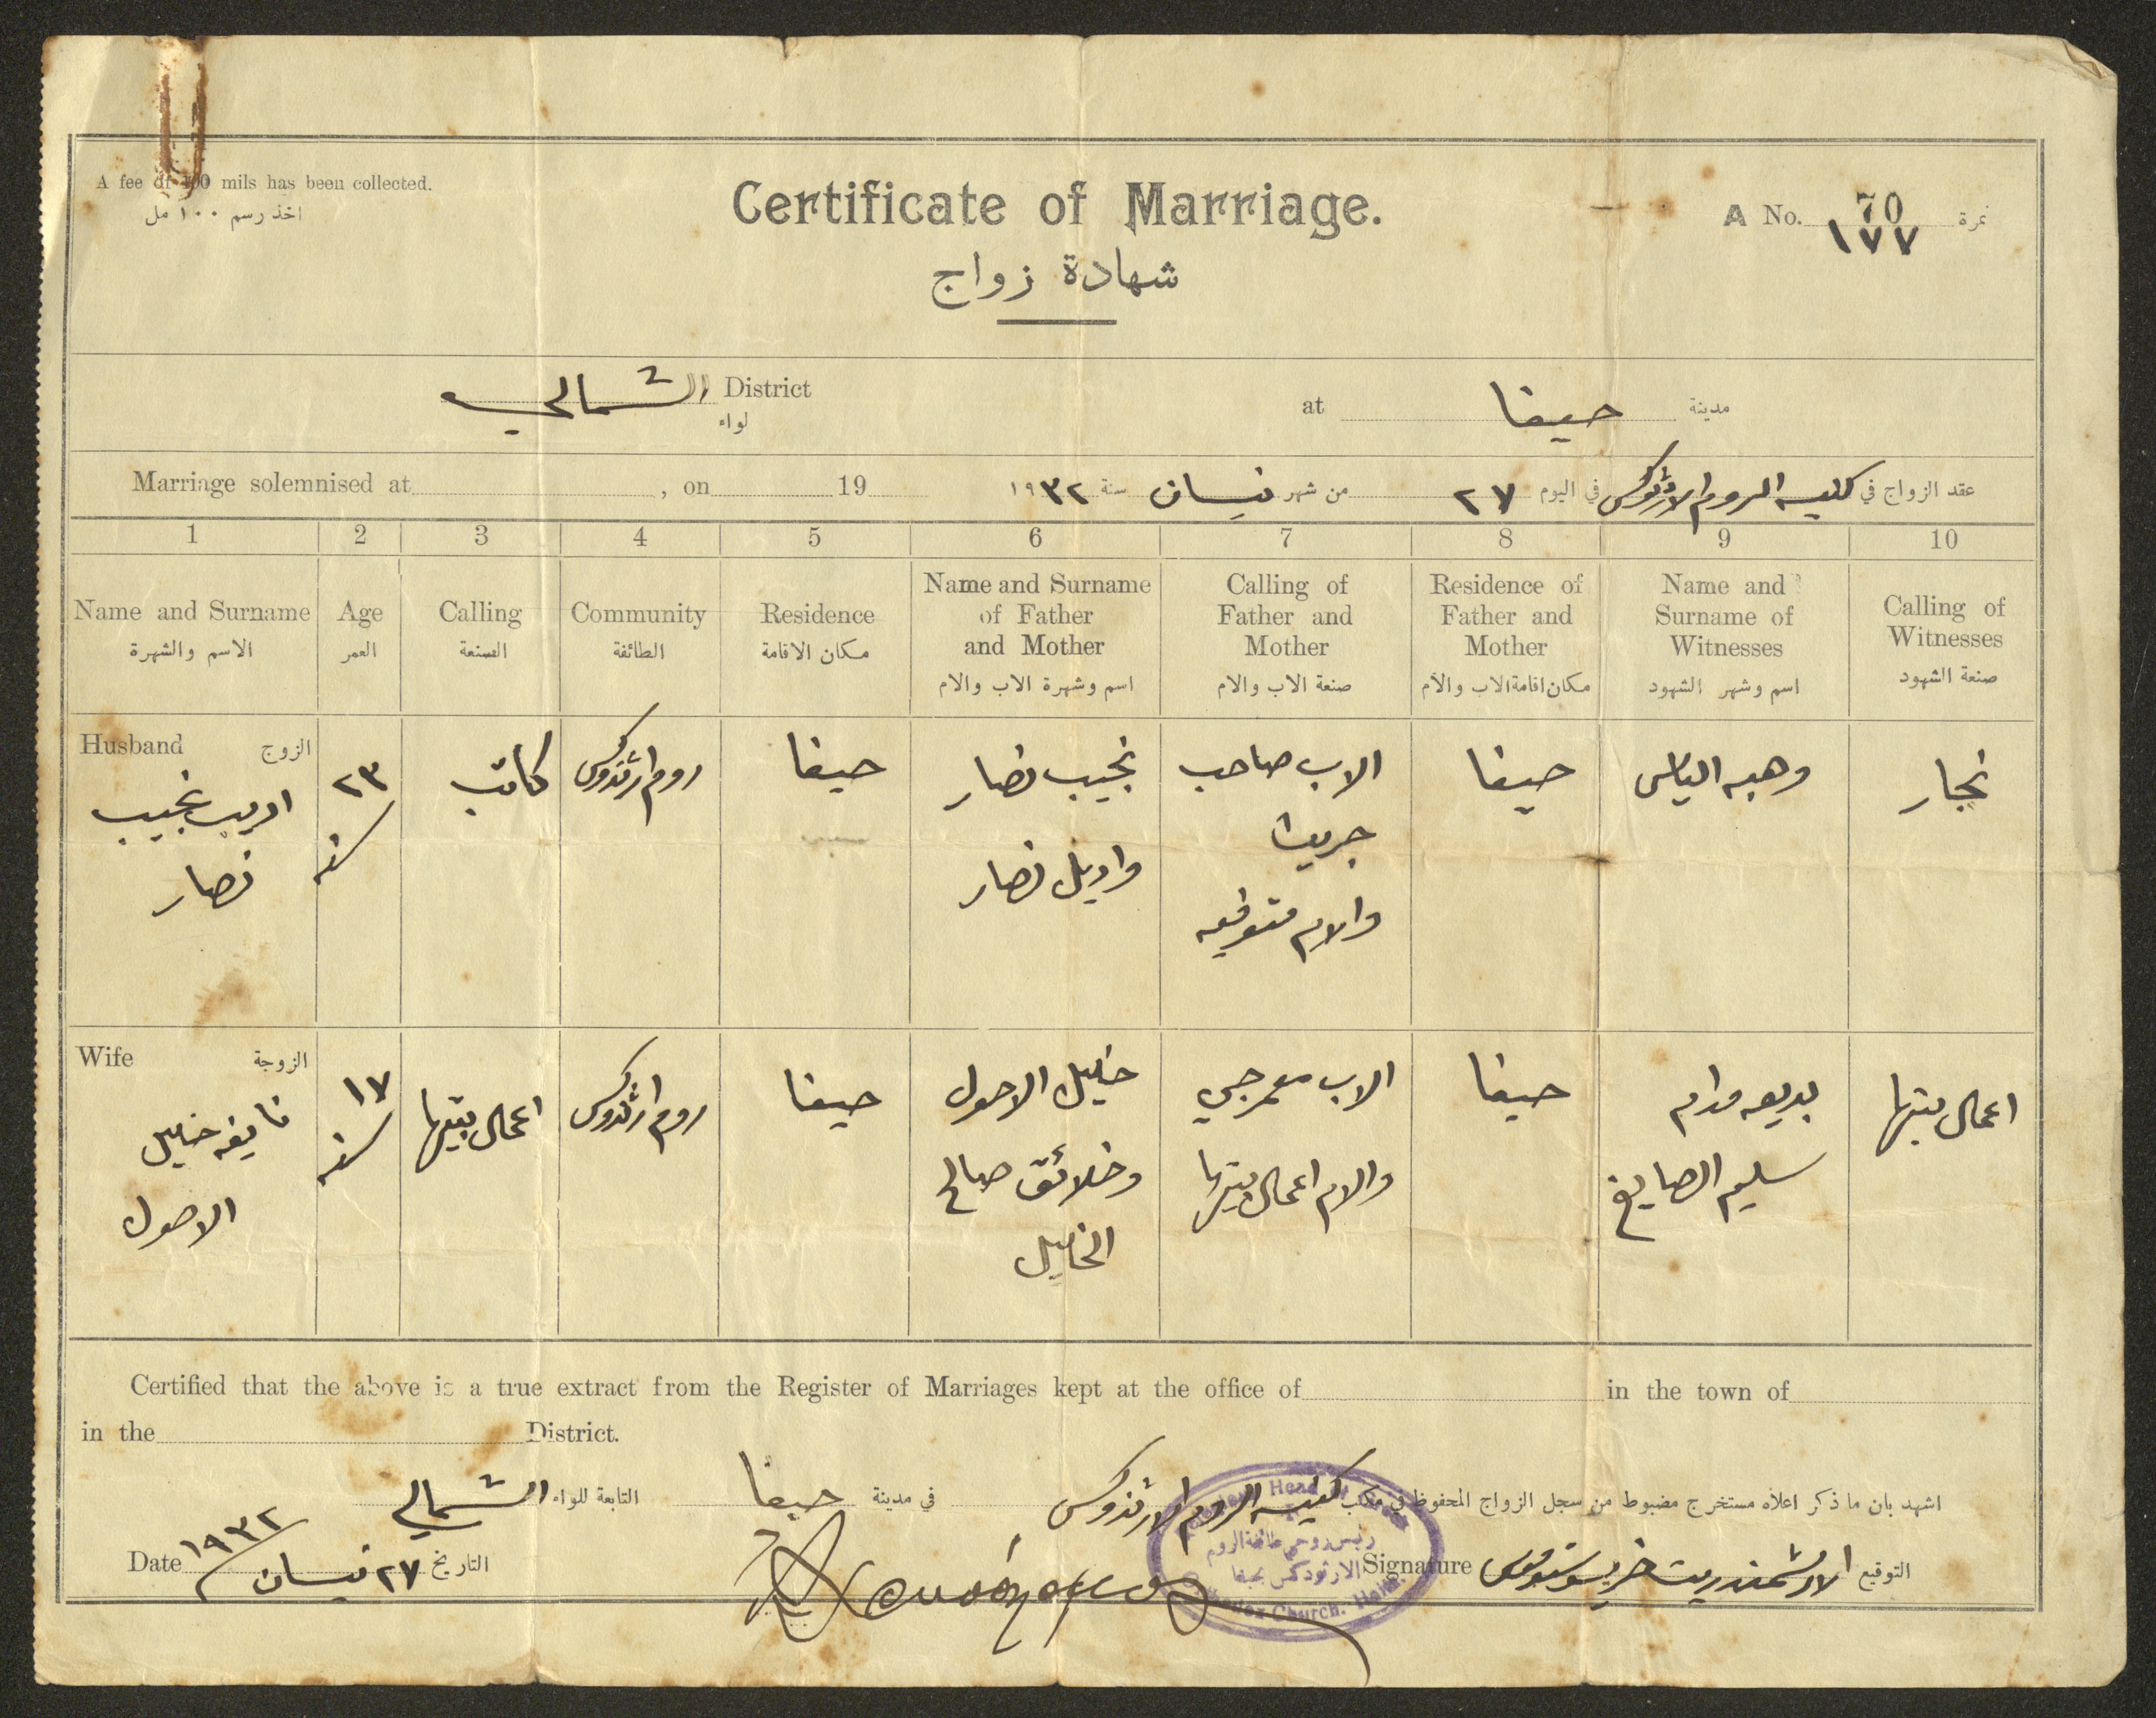 A fee of 100 mils has been collected.
اخذ رسم ١٠٠ مل
Certificate of Marriage.
شهادة زواج
A No. 70 نمرة
١٧٧
الشمالي District
لواء
at حيفا مدينة
Marriage solemnised at , on 19
عقد الزواج في كنيسة الروم الارثوذكس في اليوم ٢٧ من شهر نيسان سنة ١٩٣٢
1 2 3 4 5 6 7 8 9 10
Name and Surname
الاسم والشهرة
Age
العمر
Calling
الصنعة
Community
الطائفة
Residence
مكان الاقامة
Name and Surname
of Father
and Mother
اسم وشهرة الاب والام
Calling of
Father and
Mother
صنعة الاب والام
Residence of
Father and
Mother
مكان اقامة الاب والام
Name and
Surname of
Witnesses
اسم وشهر الشهود
Calling of
Witnesses
صنعة الشهود
Husband الزوج
اديب نجيب
نصار
٢٣
سنه
كاتب
روم ارثوذكس
حيفا
نجيب نصار
واديل نصار
الاب صاحب
جريدة
والام متوفيه
حيفا
وهبه الياس
نجار
Wife الزوجة
نايفه خليل
الاحول
١٧
سنه
اعمال بيتها
روم ارثوذكس
حيفا
خليل الاحول
وخلائق صالح
الخليل
الاب معرجي
والام اعمال بيتها
حيفا
بديعه مدام
سليم الصايغ
اعمال بيتها
Certified that the above is a true extract from the Register of Marriages kept at the office of in the town of
in the District.
اشهد بان ما ذكر اعلاه مستخرج مضبوط من سجل الزواج المحفوظ في مكتب كنيسة الروم الارثوذكس في مدينة حيفا التابعة للواء الشمالي
Head
رئيس روحي طائفة الروم
الارثوذكس بحيفا
Church. Haifa
التوقيع الارشمندريت خريسوستوموس Signature
Date ١٩٣٢ ٢٧ نيسان التاريخ